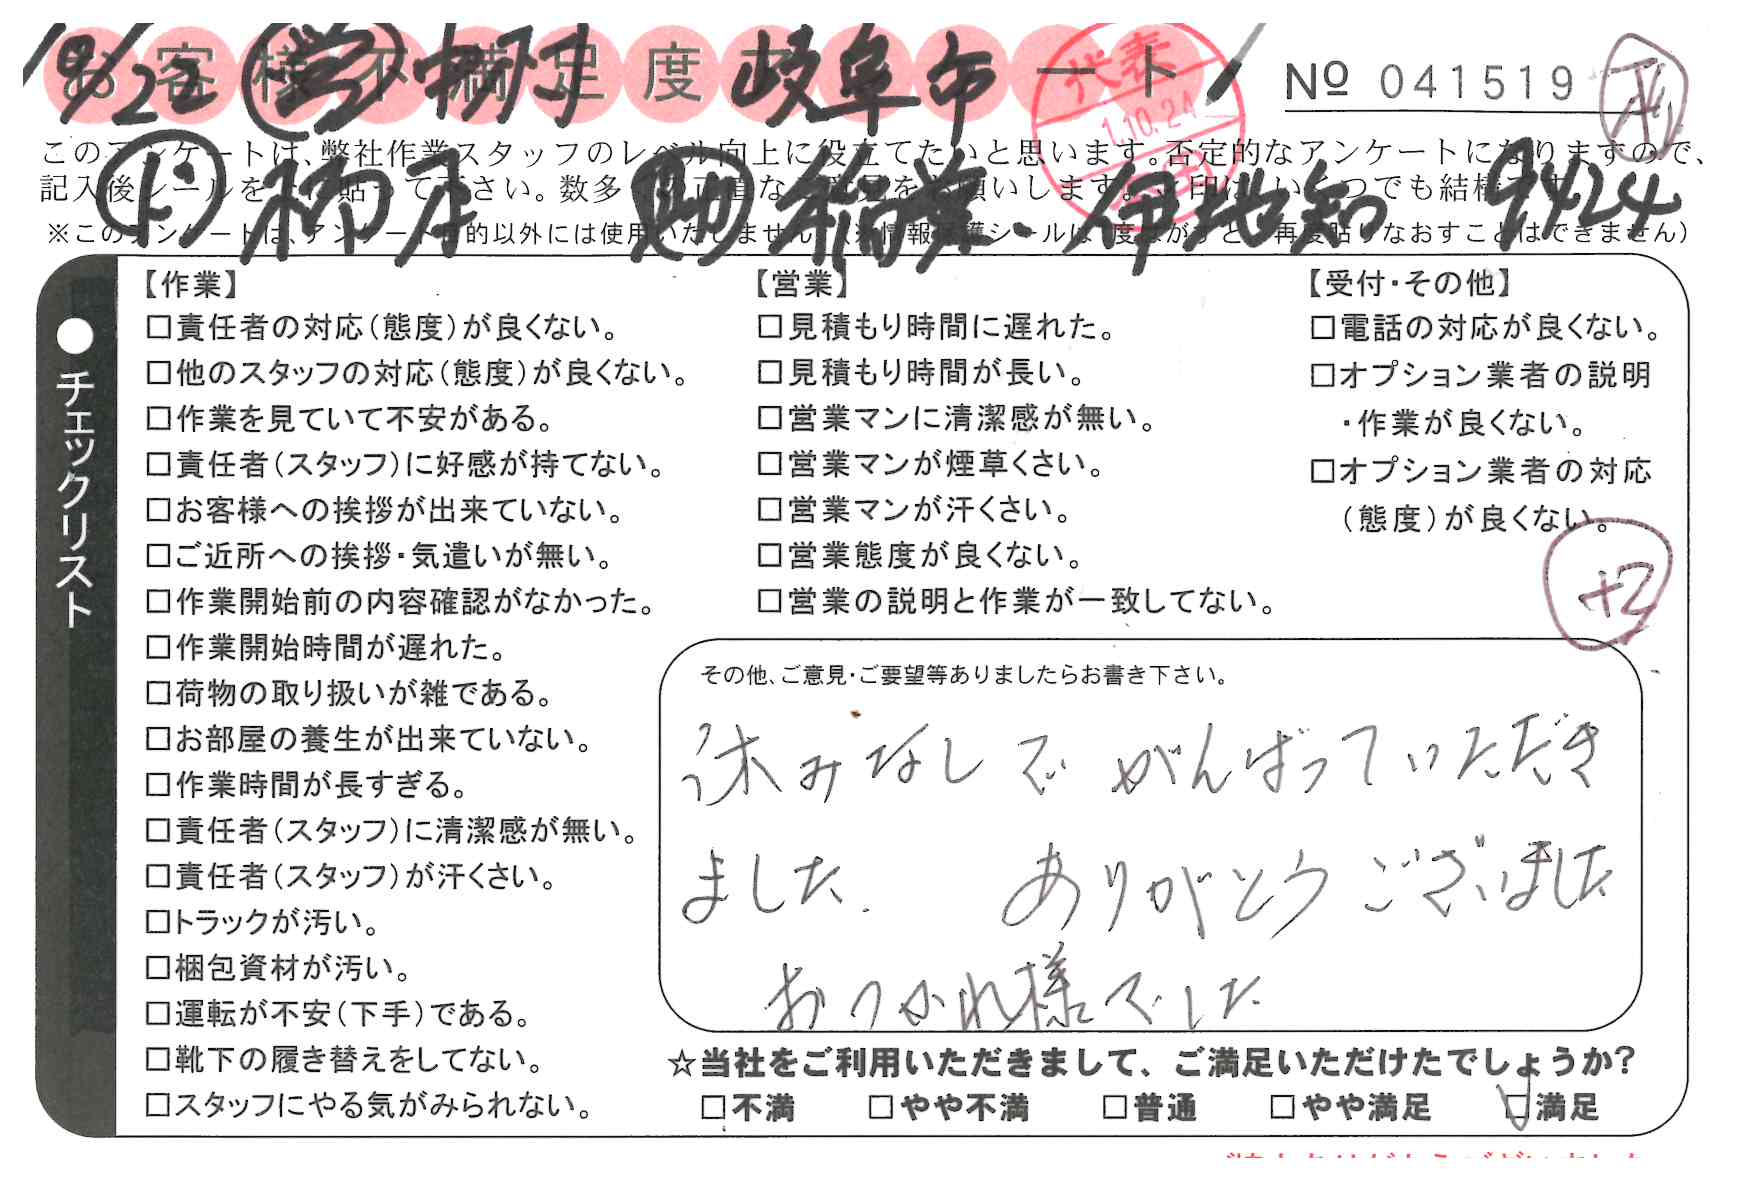 お客様不満足度アンケート
10/22 営 棚村 岐阜市
代表
1.10.24
№ 041519
このアンケートは、弊社作業スタッフのレベル向上に役立てたいと思います。否定的なアンケートになりますので、
記入後シールを上に貼って下さい。数多くの正直なご意見をお願いします。✓印は、いくつでも結構です。
ド 助 伊地知 9/24
※このアンケートは、アンケート目的以外には使用いたしません。(※情報保護シールは1度はがすと、再度貼りなおすことはできません)
●チェックリスト
【作業】
□責任者の対応(態度)が良くない。
□他のスタッフの対応(態度)が良くない。
□作業を見ていて不安がある。
□責任者(スタッフ)に好感が持てない。
□お客様への挨拶が出来ていない。
□ご近所への挨拶・気遣いが無い。
□作業開始前の内容確認がなかった。
□作業開始時間が遅れた。
□荷物の取り扱いが雑である。
□お部屋の養生が出来ていない。
□作業時間が長すぎる。
□責任者(スタッフ)に清潔感が無い。
□責任者(スタッフ)が汗くさい。
□トラックが汚い。
□梱包資材が汚い。
□運転が不安(下手)である。
□靴下の履き替えをしてない。
□スタッフにやる気がみられない。
【営業】
□見積もり時間に遅れた。
□見積もり時間が長い。
□営業マンに清潔感が無い。
□営業マンが煙草くさい。
□営業マンが汗くさい。
□営業態度が良くない。
□営業の説明と作業が一致してない。
【受付・その他】
□電話の対応が良くない。
□オプション業者の説明
・作業が良くない。
□オプション業者の対応
(態度)が良くない。
+2
その他、ご意見・ご要望等ありましたらお書き下さい。
休みなしでがんばっていただき
ました. ありがとうございました
おつかれ様でした
☆当社をご利用いただきまして、ご満足いただけたでしょうか?
□不満 □やや不満 □普通 □やや満足 ☑満足